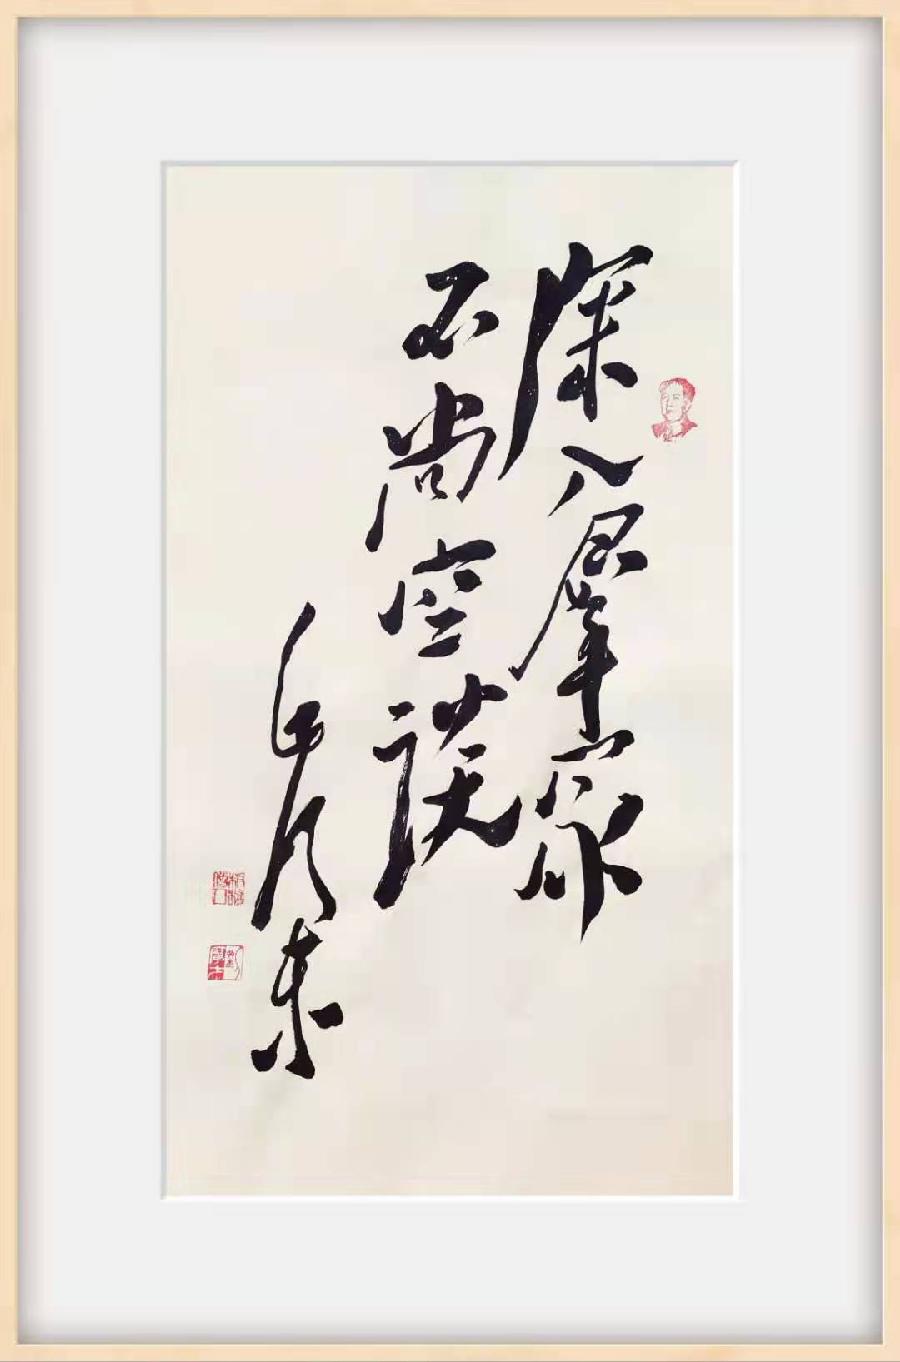 深入羣众
不尚空谈
毛泽东